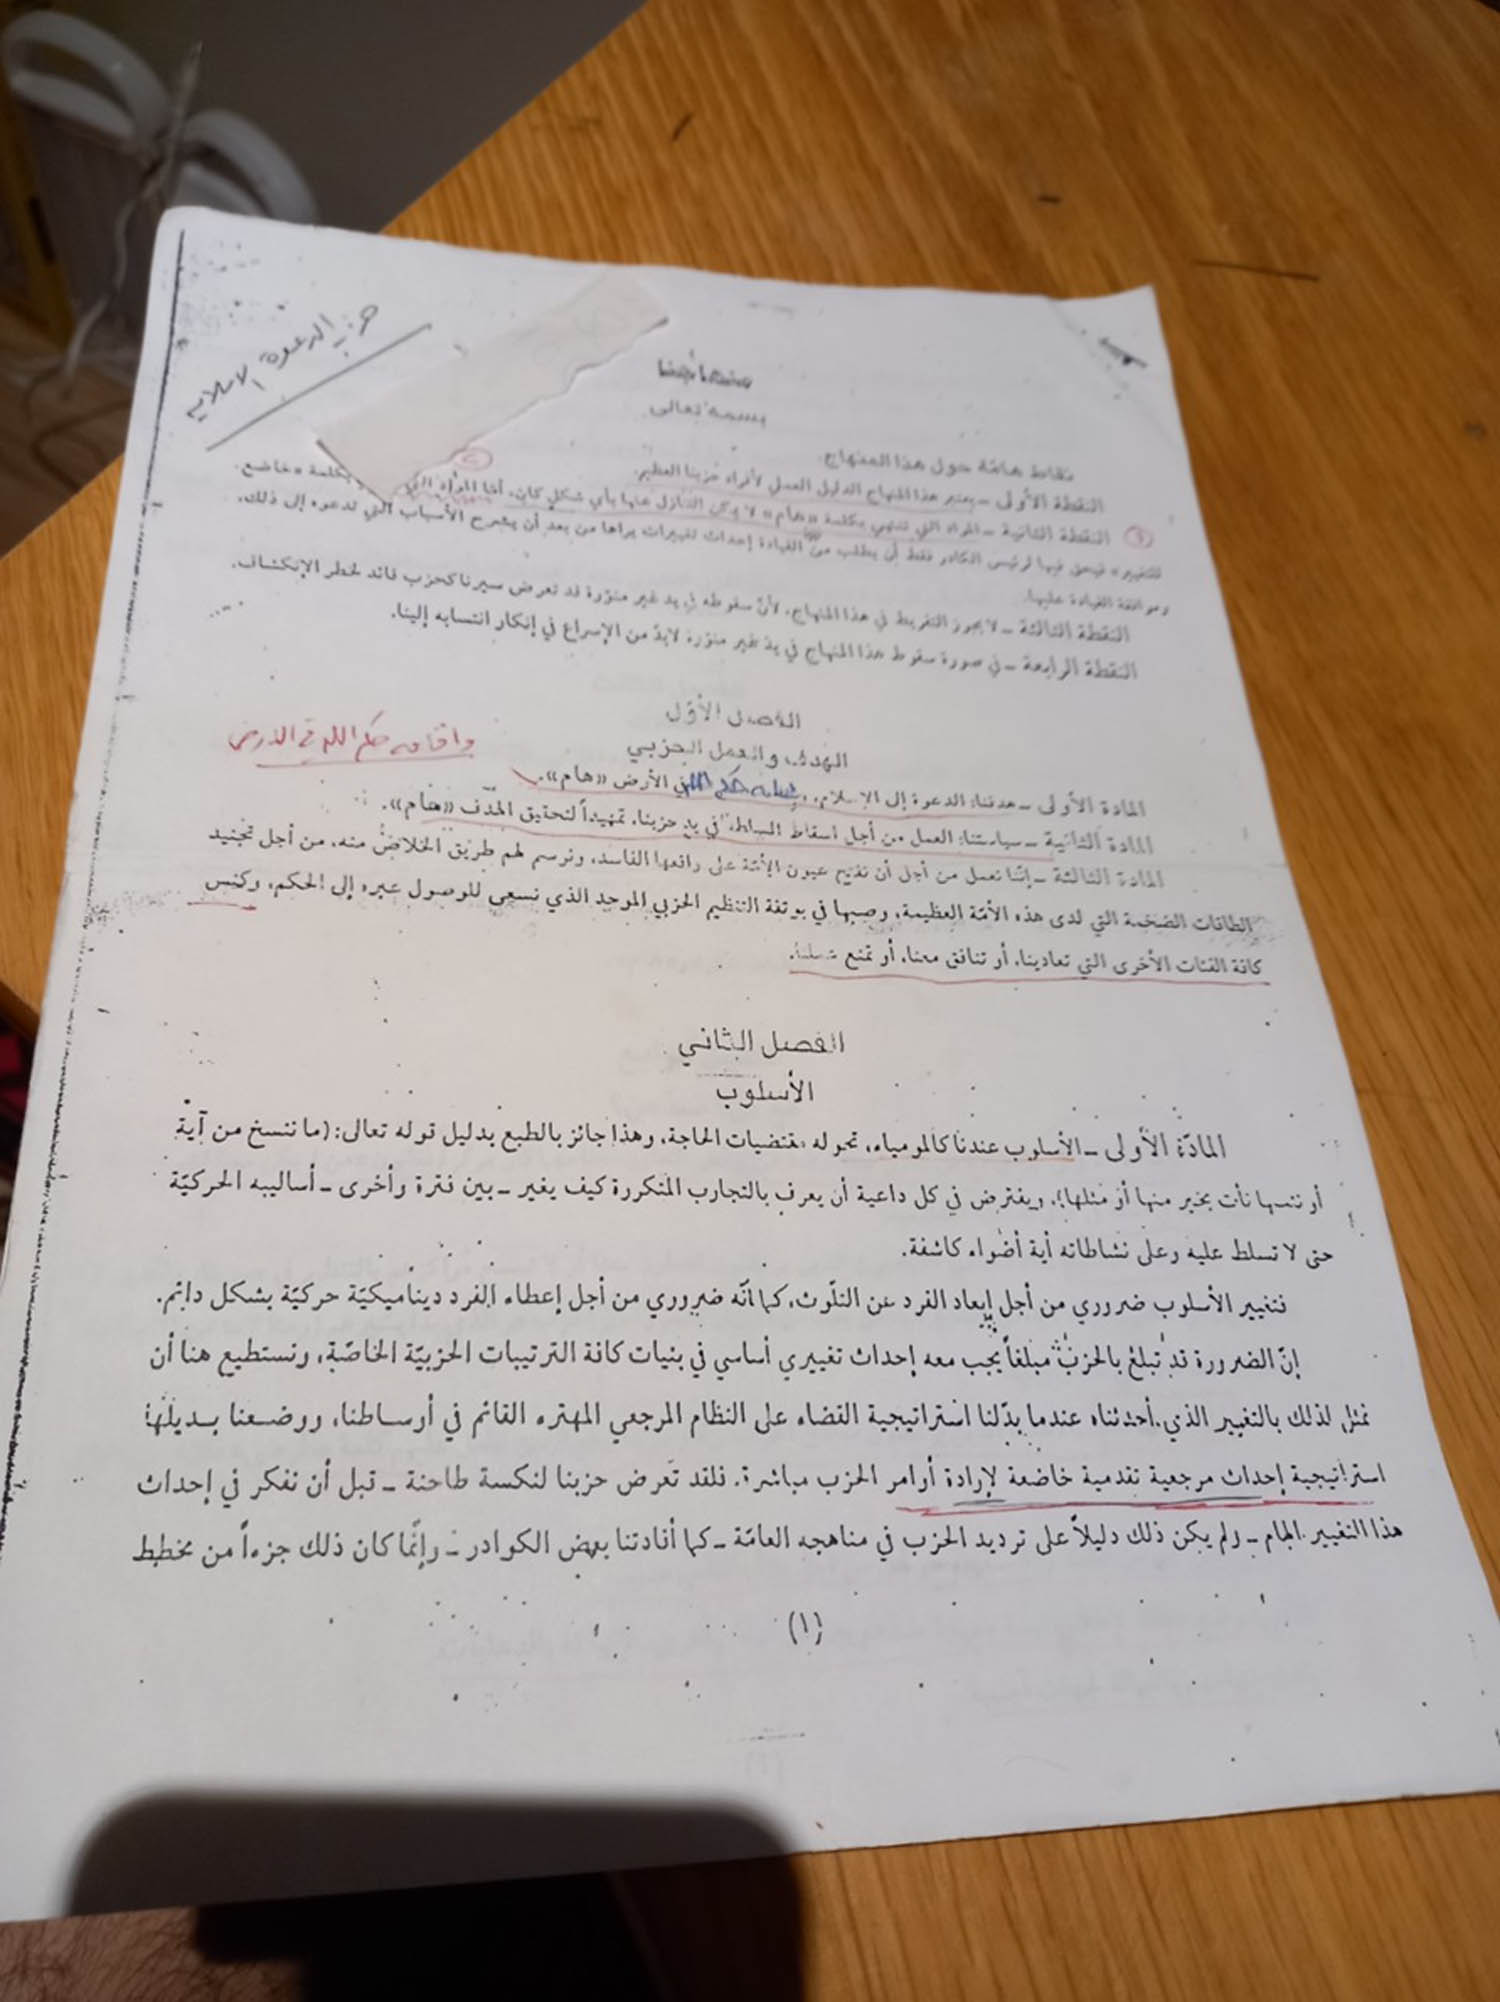 حزب الدعوة الاسلامية
منهاجنا
بسمه تعالى
نقاط هامّة حول هذا المنهاج.
النقطة الأولى ــ يعتبر هذا المنهاج الدليل العملي لأفراد حزبنا العظيم.
النقطة الثانية ــ المواد التي تنتهي بكلمة «هام» لا يمكن التنازل عنها بأي شكل كان، أمّا المواد التي بكلمة «خاضع
للتغيير» فيحق فيها لرئيس الكادر فقط أن يطلب من القيادة إحداث تغييرات يراها من بعد أن يشرح الأسباب التي تدعوه إلى ذلك،
وموافقة القيادة عليها.
النقطة الثالثة ــ لا يجوز التفريط في هذا المنهاج، لأنّ سقوطه في يد غير منوّرة قد تعرض سيرنا كحزب قائد لخطر الإنكشاف.
النقطة الرابعة ــ في صورة سقوط هذا المنهاج في يد غير منوّرة لابدّ من الإسراع في إنكار انتسابه إلينا.
الفصل الأوّل
الهدف والعمل الحزبي
واقامة حكم الله في الارض
المادة الأولى ــ هدفنا: الدعوة إلى الإسلام.. حكم الله في الأرض «هام».
المادة الثانية ــ سياستنا: العمل من أجل اسقاط السلطة في يد حزبنا، تمهيداً لتحقيق الهدف «هام».
المادة الثالثة ــ إنّنا نعمل من أجل أن نفتح عيون الأمّة على واقعها الفاسد، ونرسم لهم طريق الخلاص منه، من أجل تجنيد
الطاقات الضخمة التي لدى هذه الأمّة العظيمة، وصبها في بوتقة التنظيم الحزبي الموحد الذي نسعى للوصول عبره إلى الحكم، وكنس
كافة الفئات الأخرى التي تعادينا، أو تنافق معنا، أو تمنع عملنا.
الفصل الثاني
الأسلوب
المادّة الأولى ــ الأسلوب عندنا كالمومياء، تحوله مقتضيات الحاجة، وهذا جائز بالطبع بدليل قوله تعالى: (ما ننسخ من آية
أو ننسها نأت بخير منها أو مثلها)، ويفترض في كل داعية أن يعرف بالتجارب المتكررة كيف يغير ــ بين فترة وأخرى ــ أساليبه الحركيّة
حتى لا تسلط عليه وعلى نشاطاته أية أضواء كاشفة.
فتغيير الأسلوب ضروري من أجل إبعاد الفرد عن التلوّث، كما أنّه ضروري من أجل إعطاء الفرد ديناميكيّة حركيّة بشكل دائم.
إنّ الضرورة قد تبلغ بالحزب مبلغاً يجب معه إحداث تغييري أساسي في بنيات كافة الترتيبات الحزبيّة الخاصّة، ونستطيع هنا أن
نمثل لذلك بالتغيير الذي أحدثناه عندما بدّلنا استراتيجية القضاء على النظام المرجعي المهتره القائم في أوساطنا، ووضعنا بديلها
استراتيجية إحداث مرجعية تقدمية خاضعة لإرادة أوامر الحزب مباشرة. فلقد تعرض حزبنا لنكسة طاحنة ــ قبل أن نفكر في إحداث
هذا التغيير الهام ــ ولم يكن ذلك دليلاً على ترديد الحزب في مناهجه العامّة ــ كما أفادتنا بعض الكوادر ــ وإنّما كان ذلك جزءاً من مخطط
(١)